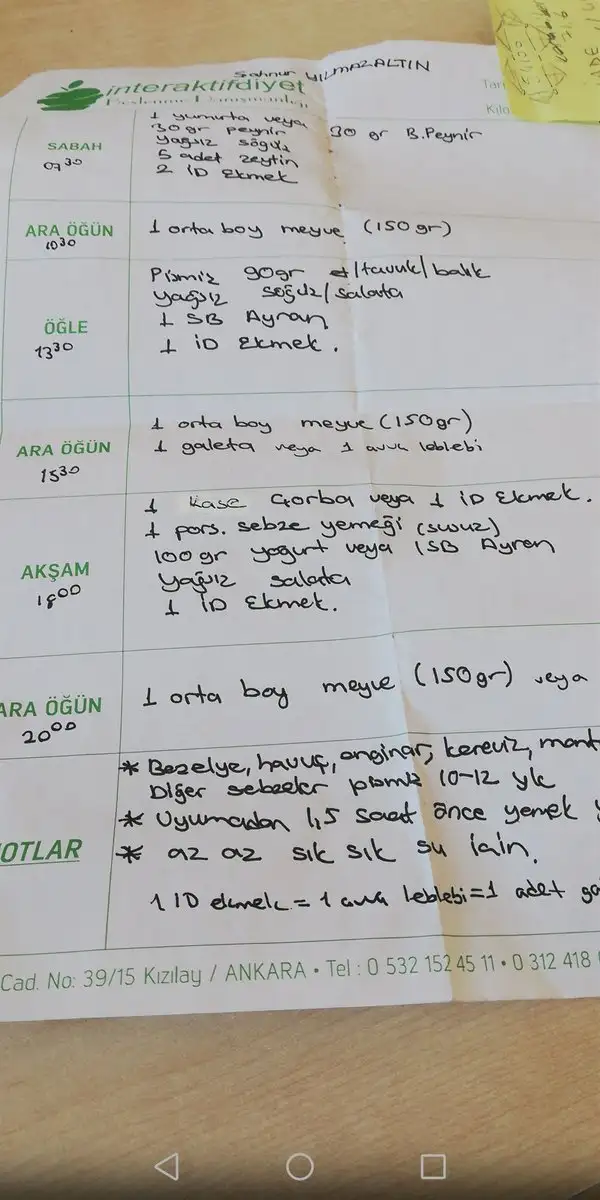 Sahnur YILMAZALTIN
interaktifdiyet
Beslenme Danışmanlığı
Tari
Kilo
SABAH
07³⁰
1 yumurta veya
30 gr peynir 30 gr B.Peynir
yağsız söğüş
5 adet zeytin
2 İD Ekmek
ARA ÖĞÜN
10³⁰
1 orta boy meyve (150 gr)
ÖĞLE
13³⁰
Pişmiş 90gr et/tavuk/balık
yağsız söğüş/salata
1 SB Ayran
1 İD Ekmek.
ARA ÖĞÜN
15³⁰
1 orta boy meyve (150gr)
1 galeta veya 1 avuç leblebi
AKŞAM
18⁰⁰
1 kase Çorba veya 1 İD Ekmek.
1 pors. sebze yemeği (susuz)
100 gr yoğurt veya 1SB Ayran
Yağsız salata
1 İD Ekmek.
ARA ÖĞÜN
20⁰⁰
1 orta boy meyve (150gr) veya
OTLAR
* Bezelye, havuç, enginar, kereviz, mant
Diğer sebzeler pişmiş 10-12 yk
* Uyumadan 1,5 saat önce yemek y
* az az sık sık su için.
1 ID ekmek = 1 avuç leblebi = 1 adet ga
Cad. No: 39/15 Kızılay / ANKARA • Tel : 0 532 152 45 11 • 0 312 418